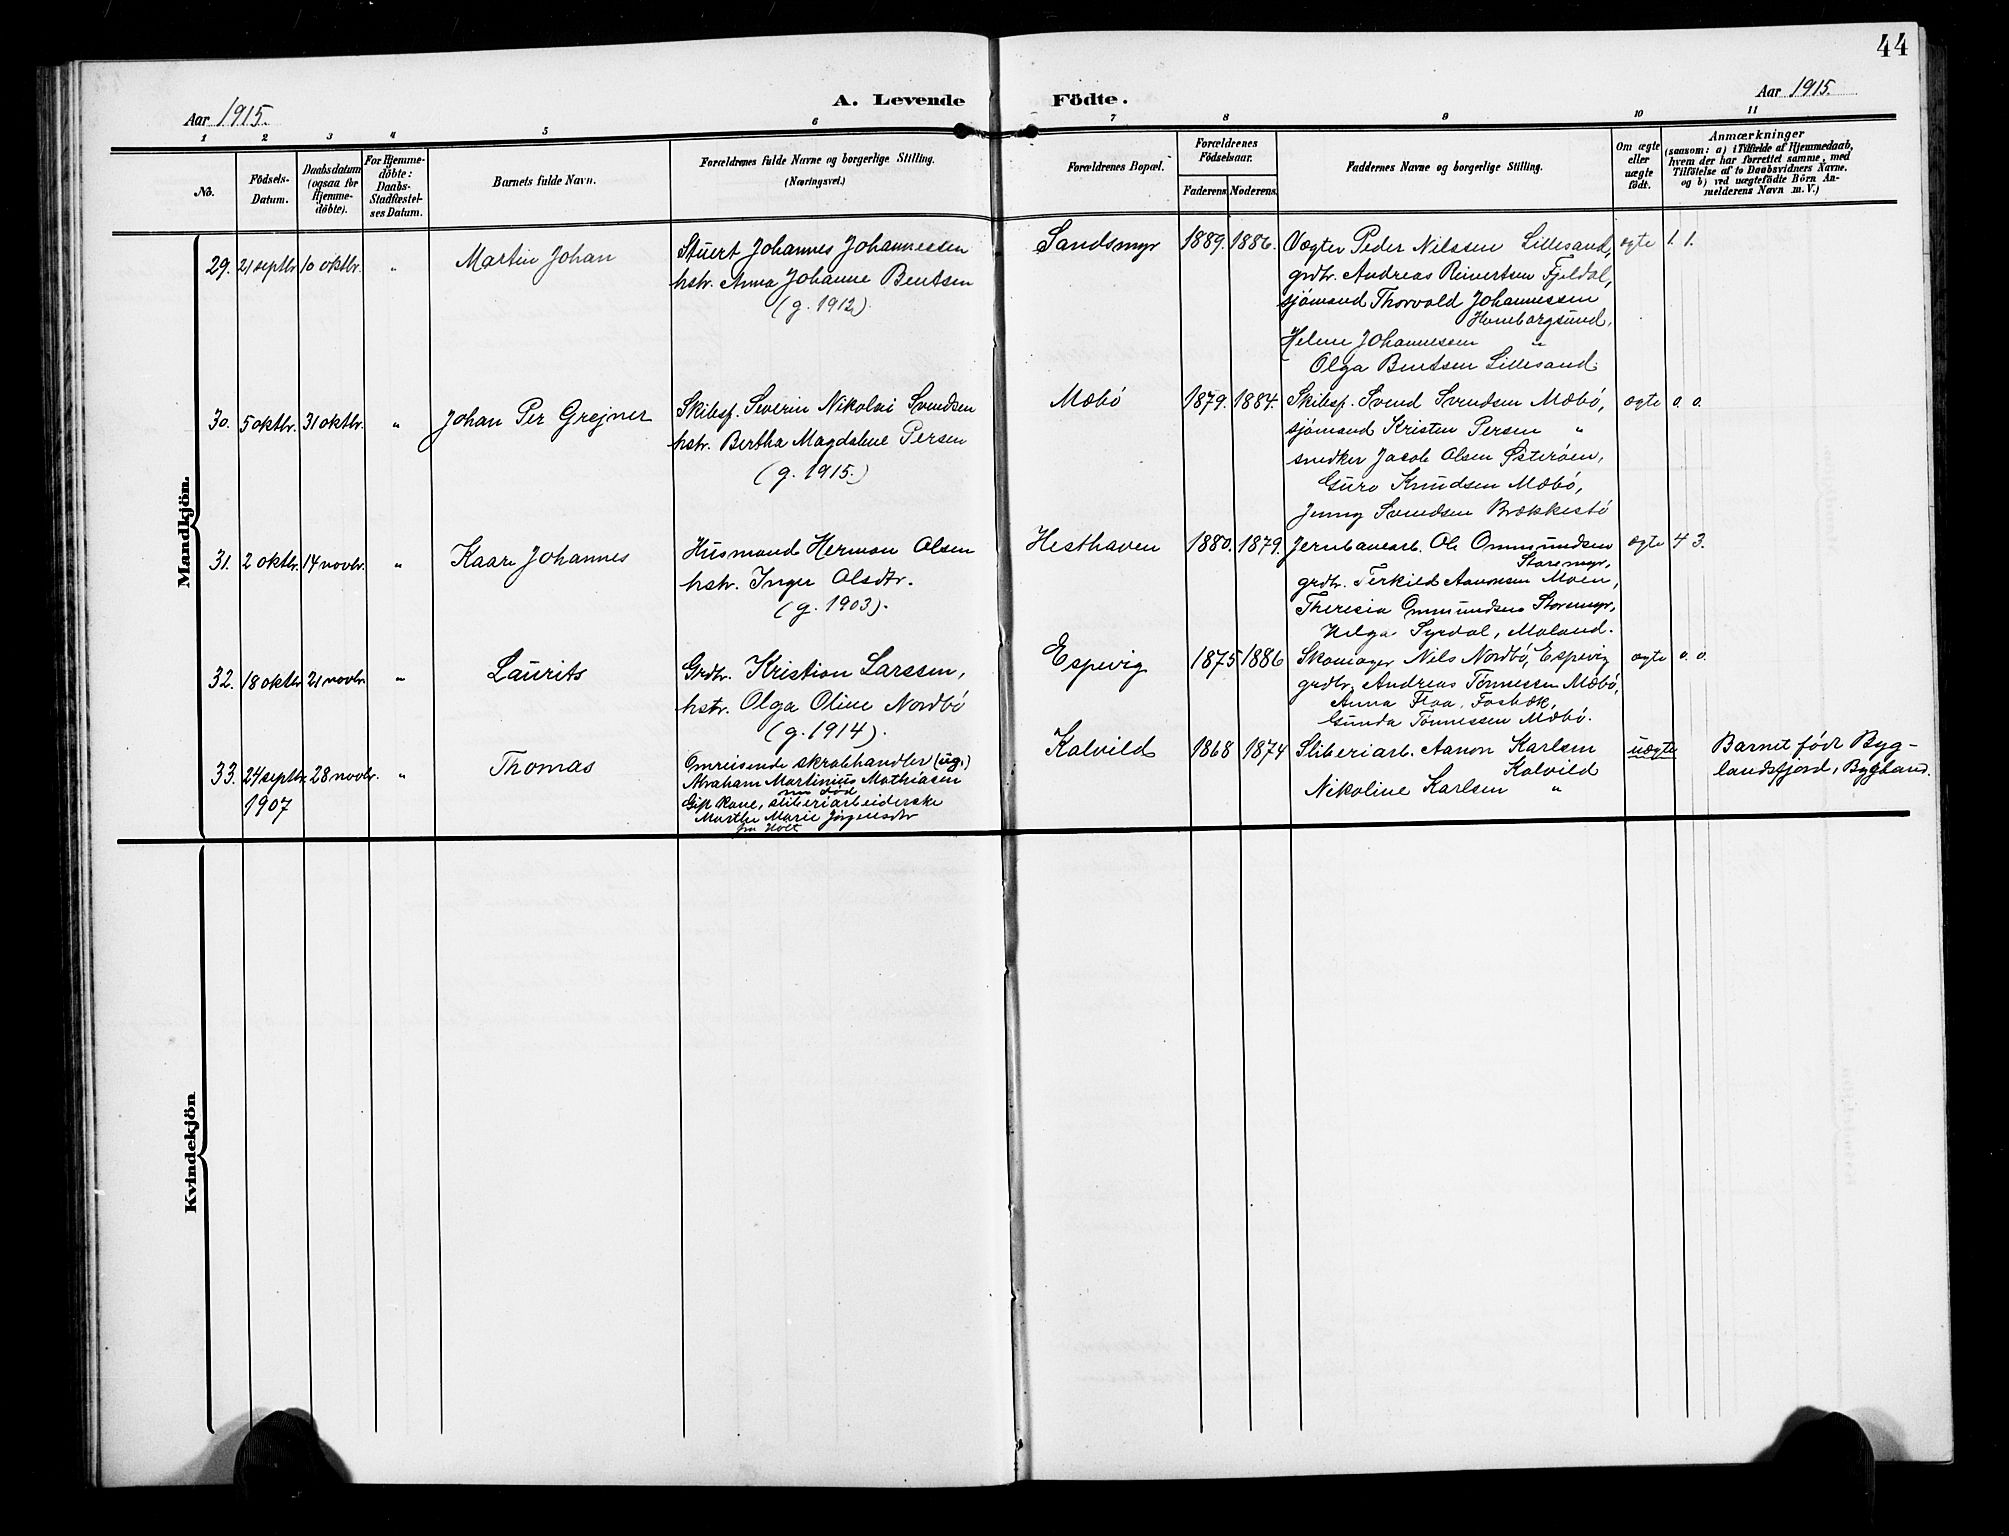 44
Aar 1915.
A. Levende Födte.
Aar 1915.
1 2 3 4 5 6 7 8 9 10 11
No.
Födsels-
Datum.
Daabsdatum
(ogsaa for
Hjemme-
döbte).
For Hjemme-
döbte:
Daabs-
Stadfæstel-
ses Datum.
Barnets fulde Navn.
Forældrenes fulde Navne og borgerlige Stilling.
(Næringsvei.)
Forældrenes Bopæl.
Forældrenes
Födselsaar.
Faderens. Moderens.
Faddernes Navne og borgerlige Stilling.
Om ægte
eller
uægte
födt.
Anmærkninger
(saasom: a) i Tilfælde af Hjemmedaab,
hvem der har forrettet samme, med
Tilföielse af to Daabsvidners Navne.
og b) ved uægtefödte Börn An-
melderens Navn m. V.)
Mandkjön.
29. 21 septbr. 10 oktbr. " Martin Johan
Stuert Johannes Johannessen
hstr. Anna Johanne Bentsen
(g. 1912).
Sandsmyr 1889. 1886.
Vægter Peder Nilssen Lillesand,
grdbr. Andreas Reinertsen Fjeldal,
sjömand Thorvald Johannessen
Homborgsund,
Helene Johannessen "
Olga Bentsen Lillesand.
ægte 1. 1.
30. 5 oktbr. 31 oktbr. " Johan Per Grejner
Skibsf. Severin Nikolai Svendsen
hstr. Bertha Magdalene Persen
(g. 1915.)
Mæbö 1879. 1884.
Skibsf. Svend Svendsen Mæbö,
sjömand Kristen Persen "
snedker Jacob Olsen Österöen,
Guro Knudsen Mæbö,
Jenny Svendsen Brækkestö
ægte 0. 0.
31. 2 oktbr. 14 novbr. " Kaare Johannes
Husmand Herman Olsen
hstr. Inger Olsdtr.
(g. 1903).
Hesthaven 1880. 1879.
Jernbanearb. Ole Ommundsen
Storemyr,
grdbr. Terkild Aanonsen Moen,
Theresia Ommundsen Storemyr,
Helga Syrdal, Moland.
ægte 4 3.
32. 18 oktbr. 21 novbr. " Laurits
Grdbr. Kristian Larssen,
hstr. Olga Oline Nordbö
(g. 1914).
Espevig 1875 1886
Skomager Nils Nordbö, Espevig
grdbr. Andreas Tönnessen Mæbö,
Anna Floa, Fosbæk,
Gunda Tönnessen Mæbö.
ægte 0. 0.
33. 24 septbr. 28 novbr. " Thomas
1907
Omreisende skrabhandler (ug.)
Abraham Martinius Mathiasen
nu død
Gift kone, sliberiarbeiderske
Marthe Marie Jörgensdtr
fra Holt
Kalvild 1868 1874
Sliberiarb. Aanon Karlsen
Kalvild
Nikoline Karlsen "
uægte
Barnet födt Byg-
landsfjord, Bygland.
Kvindekjön